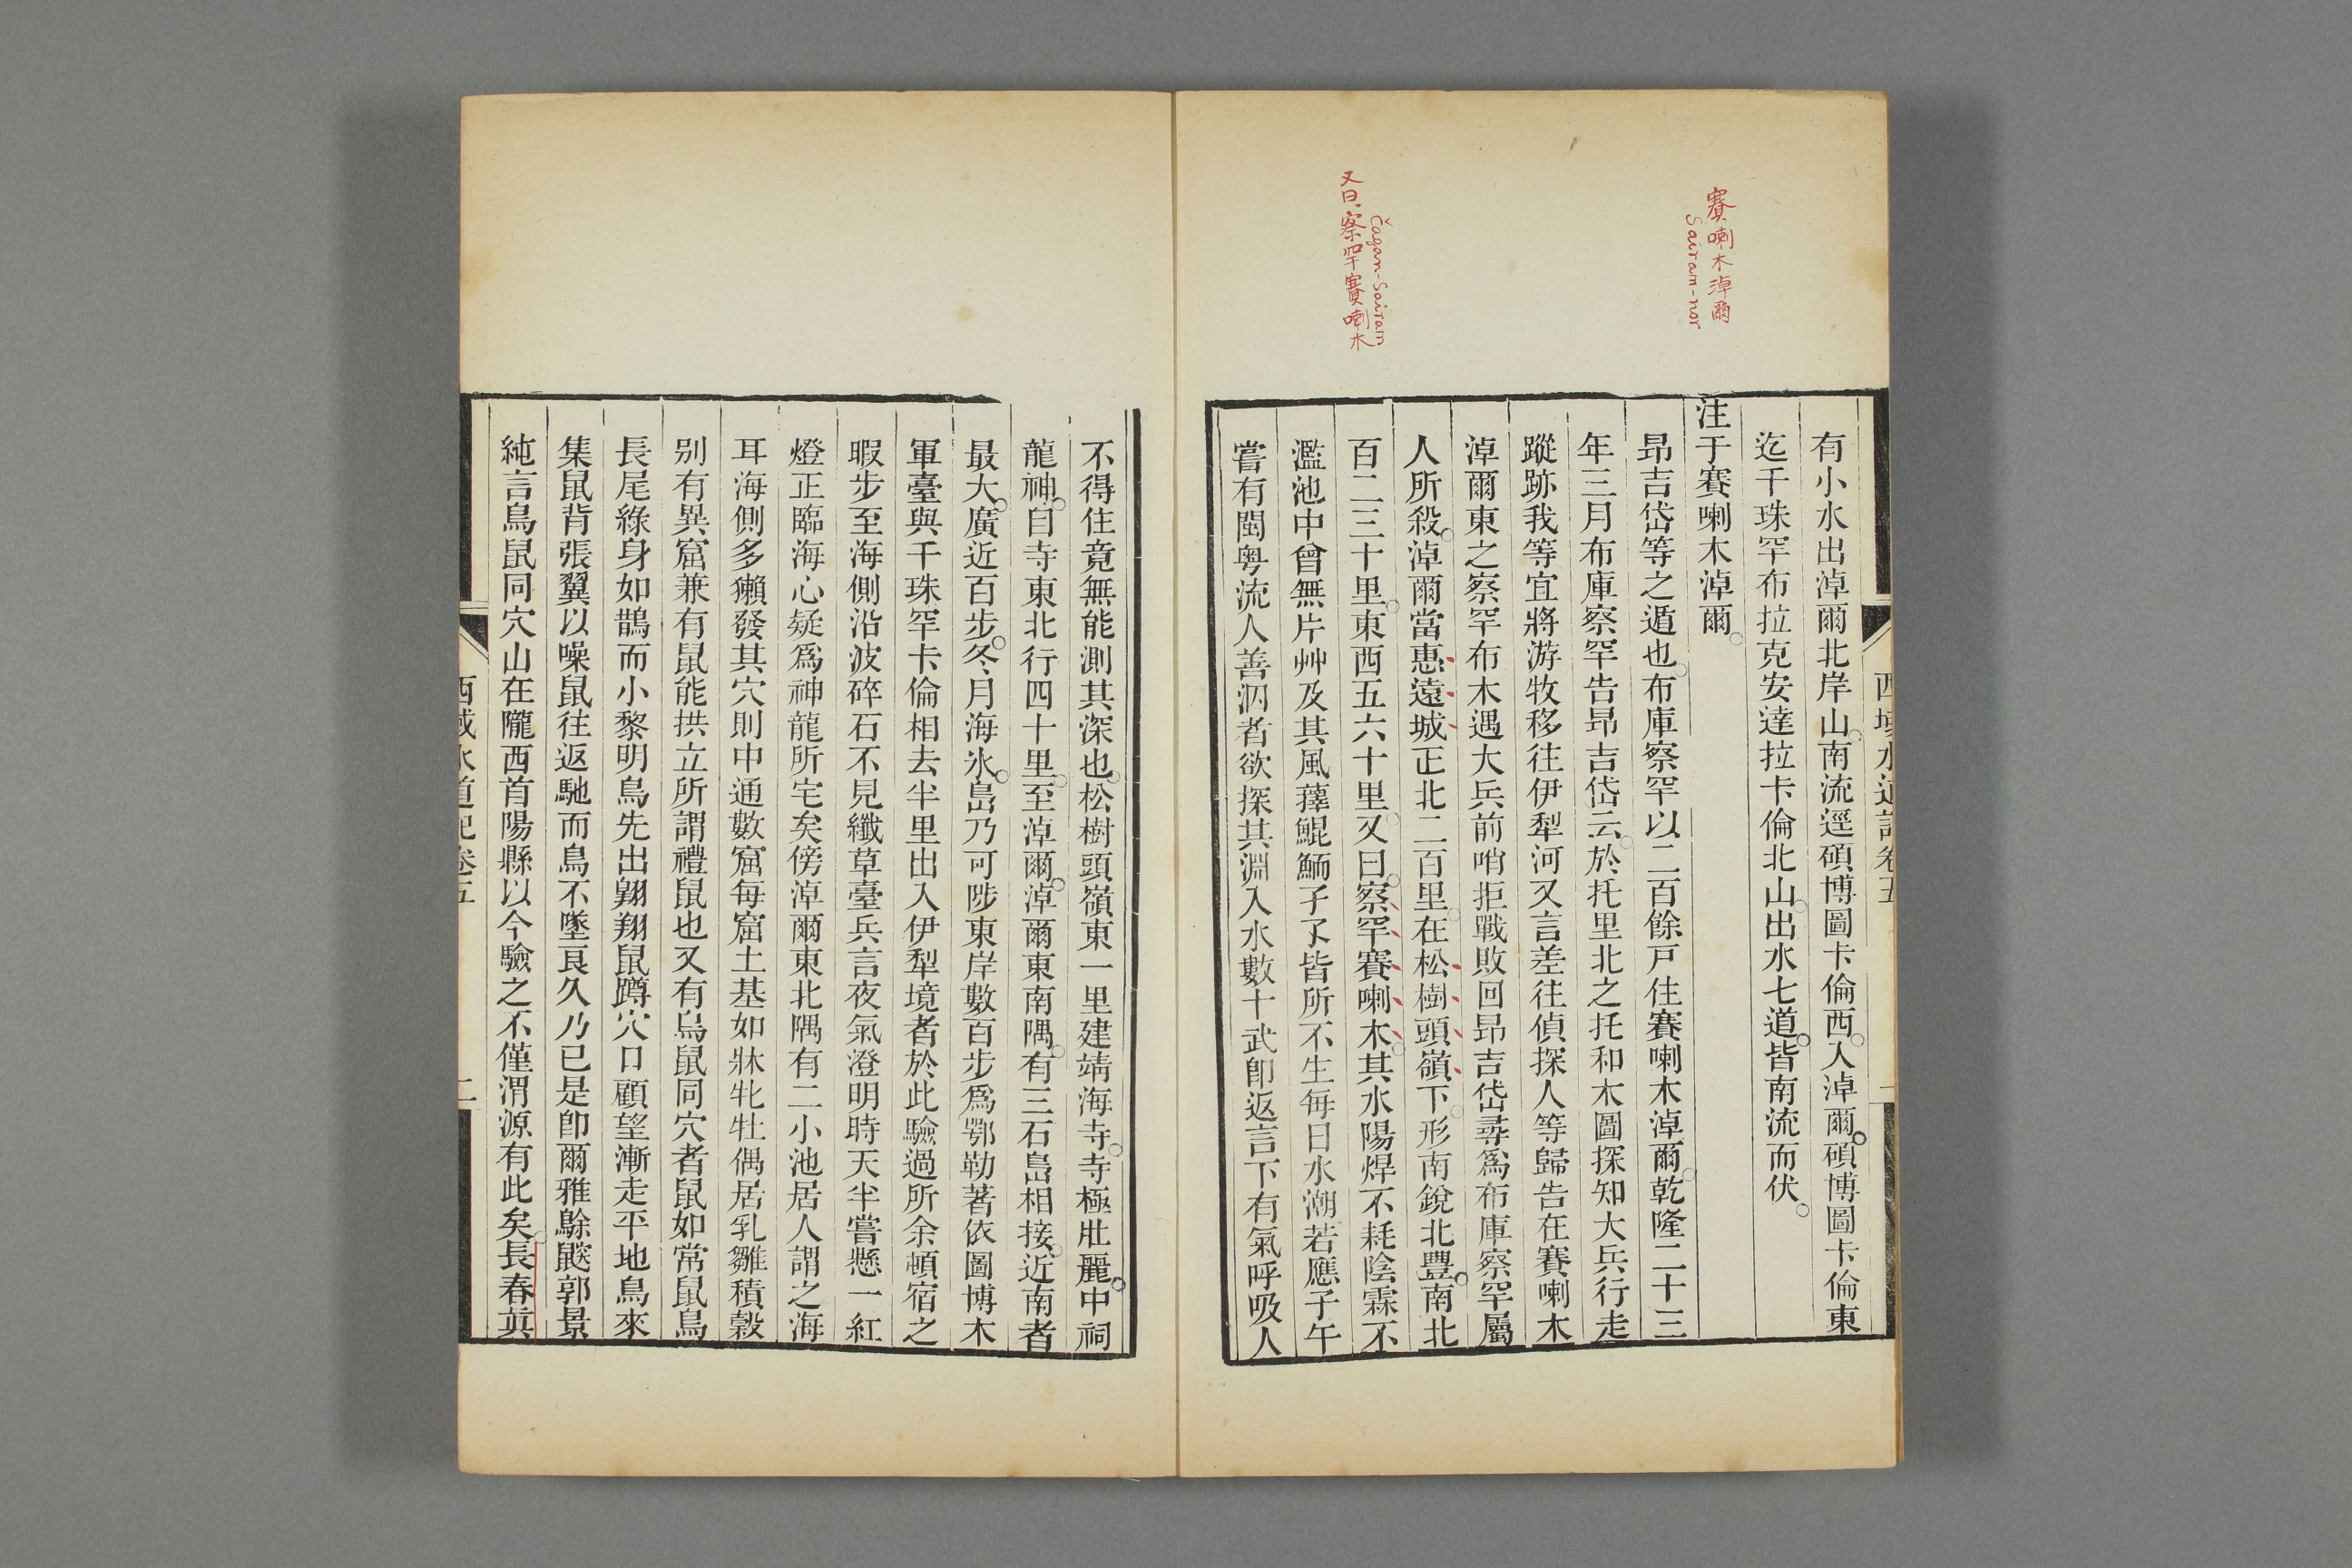 賽喇木淖爾
Sairam-nor
Čagan-Sairam
又曰察罕賽喇木
西域水道記卷五
一
有小水出淖爾北岸山南流逕碩博圖卡倫西入淖爾碩博圖卡倫東
迄干珠罕布拉克安達拉卡倫北山出水七道皆南流而伏
注于賽喇木淖爾
昂吉岱等之遁也布庫察罕以二百餘戸住賽喇木淖爾乾隆二十三
年三月布庫察罕告昂吉岱云於托里北之托和木圖探知大兵行走
蹤跡我等宜將游牧移往伊犁河又言差往偵探人等歸告在賽喇木
淖爾東之察罕布木遇大兵前哨拒戰敗回昂吉岱尋爲布庫察罕屬
人所殺淖爾當惠遠城正北二百里在松樹頭嶺下形南銳北豐南北
百二三十里東西五六十里又曰察罕賽喇木其水陽焊不耗陰霖不
濫池中曾無片艸及其風薶鯤鮞孑孓皆所不生每日水潮若應子午
嘗有閩粵流人善泅者欲探其淵入水數十武卽返言下有氣呼吸人
不得住竟無能測其深也松樹頭嶺東一里建靖海寺寺極壯麗中祠
龍神自寺東北行四十里至淖爾淖爾東南隅有三石島相接近南者
最大廣近百步冬月海氷島乃可陟東岸數百步爲鄂勒著依圖博木
軍臺與干珠罕卡倫相去半里出入伊犁境者於此驗過所余頓宿之
暇步至海側沿波碎石不見纖草臺兵言夜氣澄明時天半嘗懸一紅
燈正臨海心疑爲神龍所宅矣傍淖爾東北隅有二小池居人謂之海
耳海側多獺發其穴則中通數窟每窟土基如牀牝牡偶居乳雛積穀
別有異窟兼有鼠能拱立所謂禮鼠也又有鳥鼠同穴者鼠如常鼠鳥
長尾綠身如鵲而小黎明鳥先出翱翔鼠蹲穴口顧望漸走平地鳥來
集鼠背張翼以噪鼠往返馳而鳥不墜良久乃已是卽爾雅鵌鼵郭景
純言鳥鼠同穴山在隴西首陽縣以今驗之不僅渭源有此矣長春眞
西域水道記卷五
二